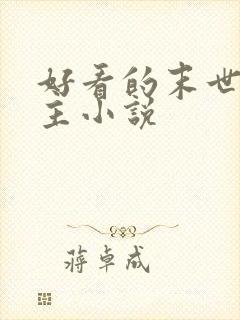 好看的末世
主小说
蒋卓成